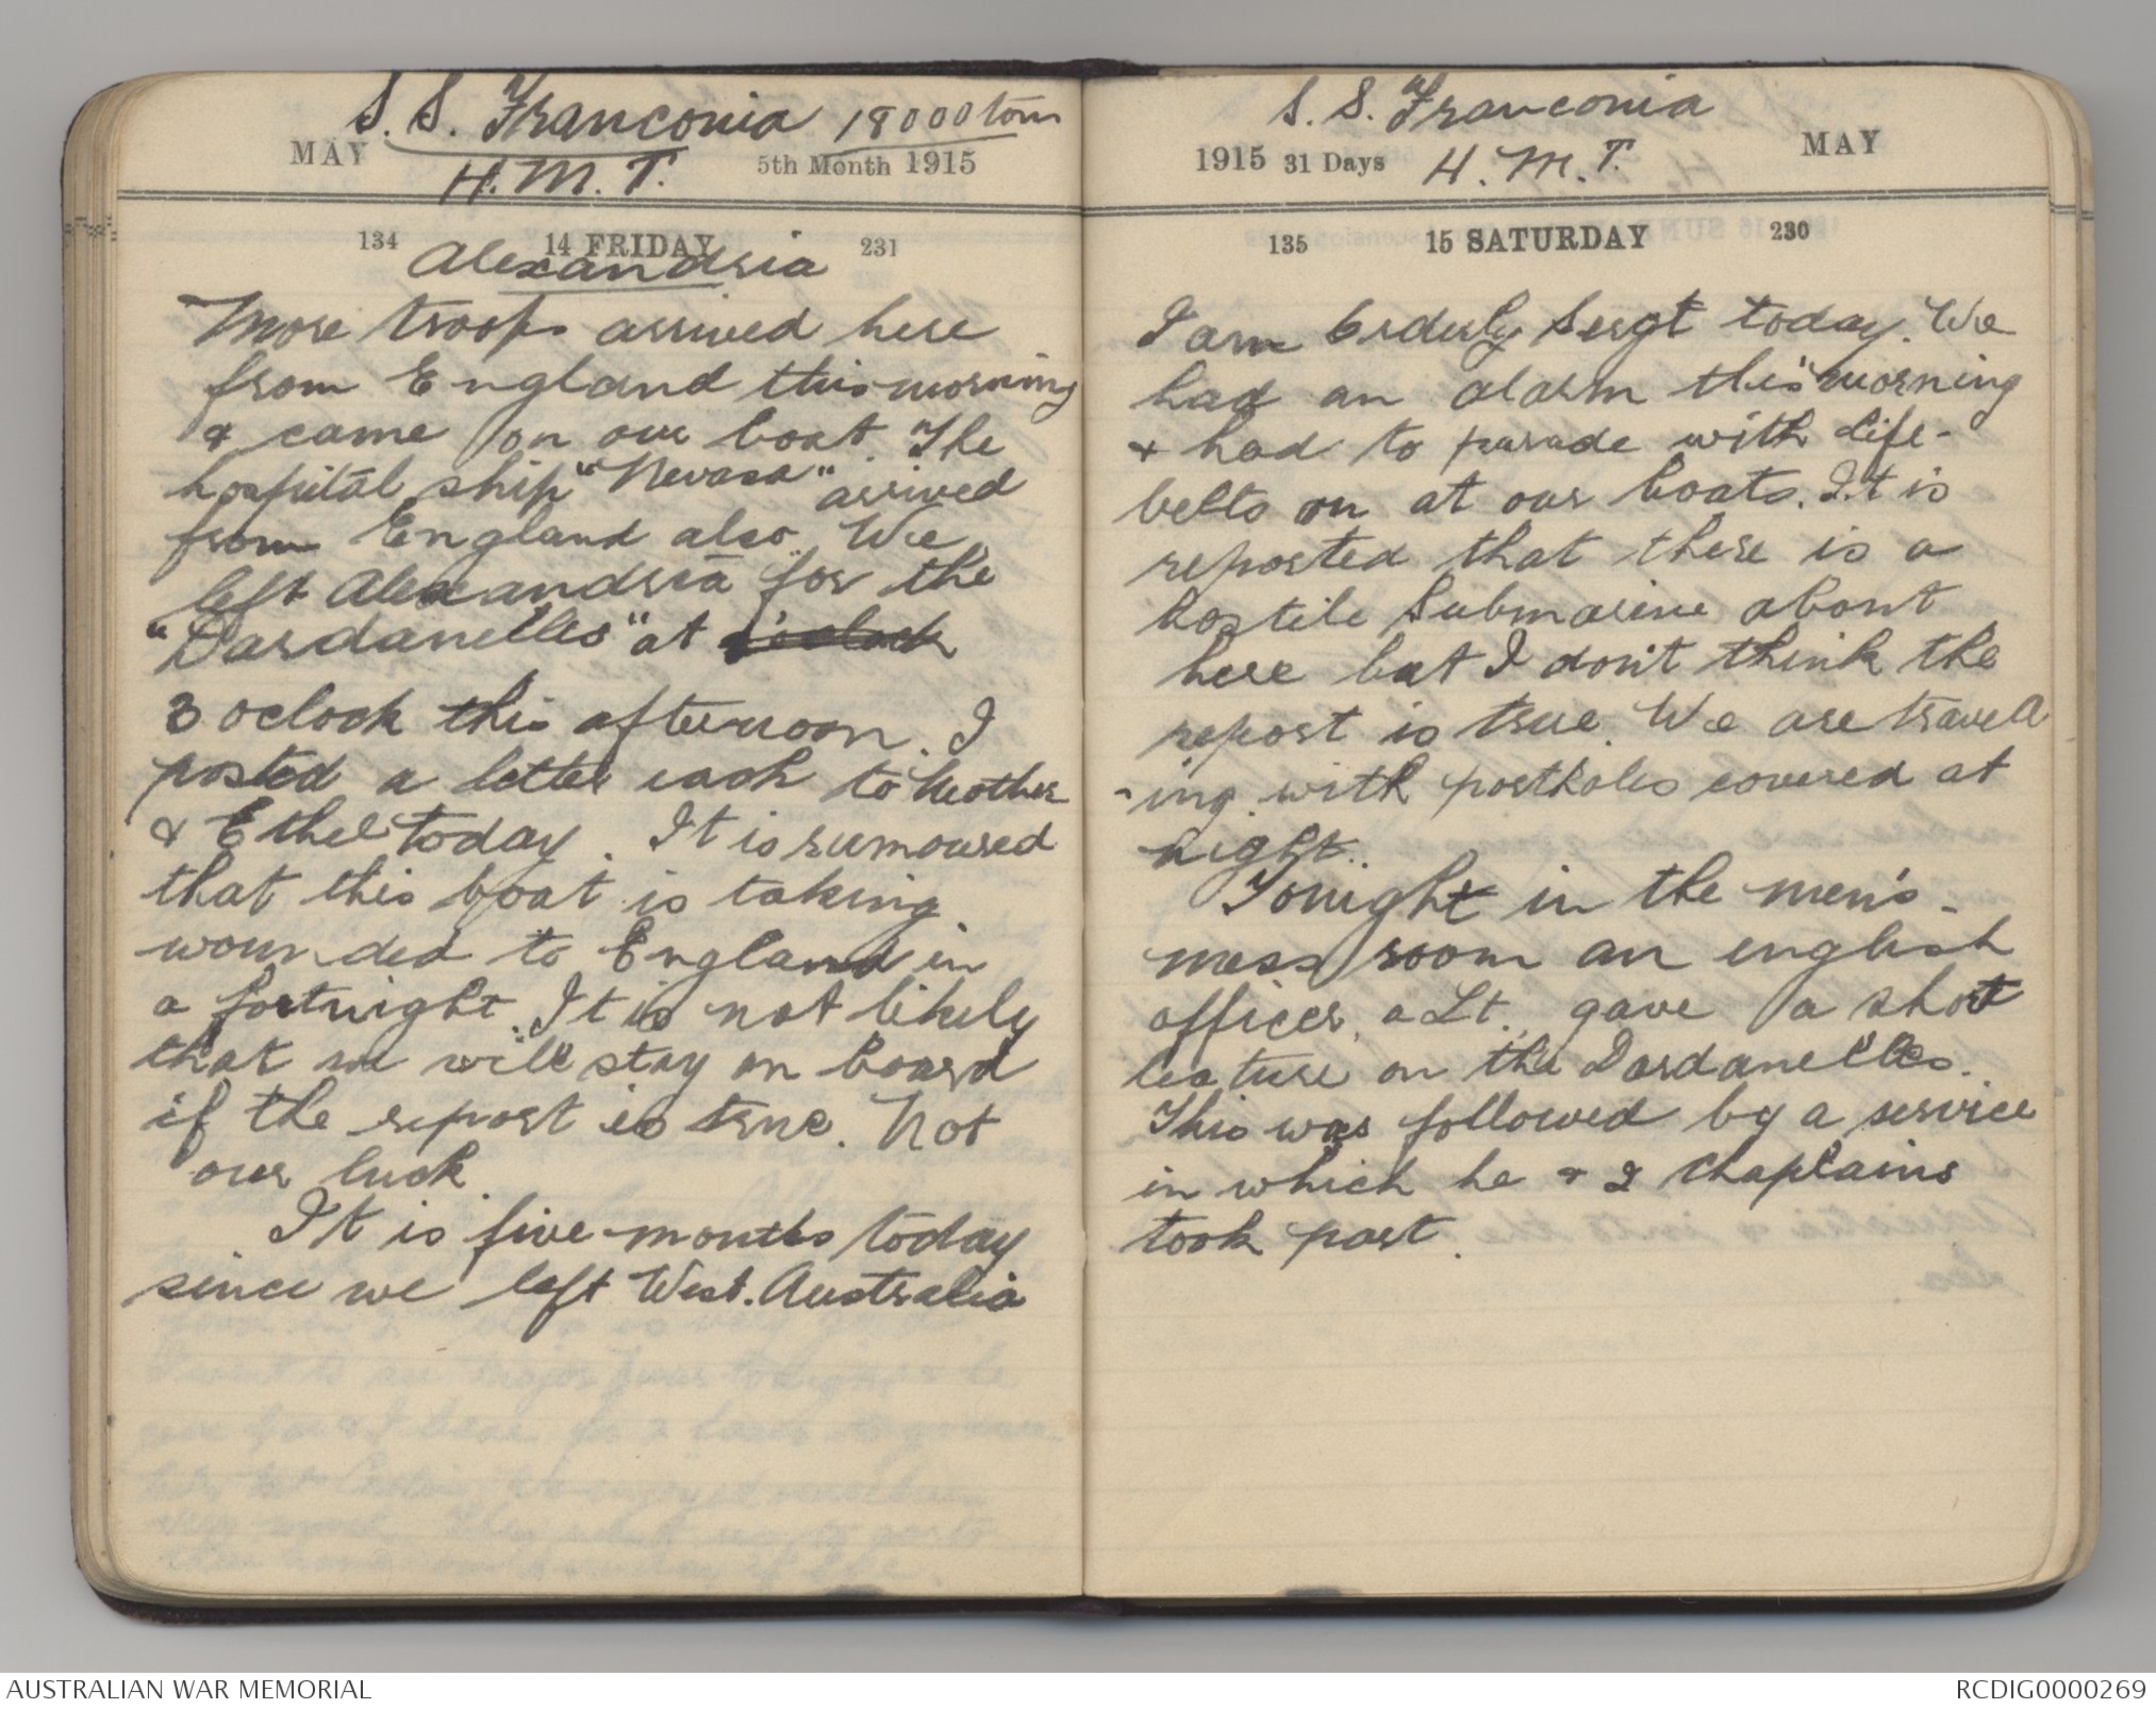 S. S. Franconia 18000 tons
MAY H.M.T. 5th Month 1915
134 14 FRIDAY 231
Alexandria
More troops arrived here
from England this morning
& came on our boat. The
hospital ship "Nevasa" arrived
from England also. We
left Alexandria for the
"Dardanelles" at
3 oclock this afternoon. I
posted a letter each to Mother
& Ethel today. It is rumoured
that this boat is taking
wounded to England in
a fortnight. It is not likely
that we will stay on board
if the report is true. Not
our luck.
It is five months today
since we left West. Australia
S. S. Franconia
1915 31 Days H.M.T. MAY
135 15 SATURDAY 230
I am Orderly Sergt today. We
had an alarm this morning
& had to parade with life-
belts on at our boats. It is
reported that there is a
hostile submarine about
here but I don't think the
report is true. We are travell
-ing with portholes covered at
night.
Tonight in the men's
mess room an english
officer, a Lt., gave a short
lecture on the Dardanelles.
This was followed by a service
in which he & 2 Chaplains
took part.
AUSTRALIAN WAR MEMORIAL
RCDIG0000269